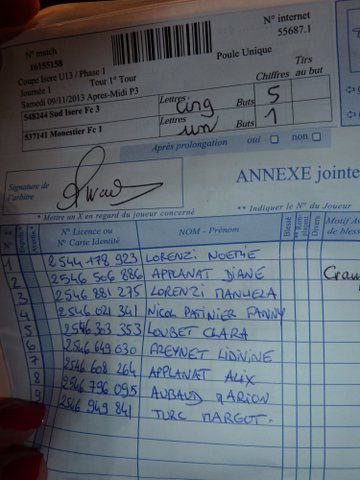 N° match
16155158
N° internet
55687.1
Coupe Isere U13 / Phase 1
Poule Unique
Journée 1 Tour 1° Tour
Samedi 09/11/2013 Apres-Midi P3
Chiffres Tirs au but
548244 Sud Isere Fc 3 Lettres cinq Buts 5
537141 Monestier Fc 1 Lettres un Buts 1
Après prolongation oui non
Signature de l'arbitre
ANNEXE jointe
* Mettre un X en regard du joueur concerné
** Indiquer le N° du Joueur
N° N° Licence ou N° Carte Identité NOM - Prénom Blessé Divers Motif
de bless
1 2544178923 LORENZI NOEMIE
2 2546506886 APPLANAT DIANE
3 2546881275 LORENZI MANUELA
4 2546021341 NICOL PATINIER FANNY
5 2546363353 LOUBET CLARA
6 2546649630 FREYNET LIDIVINE
7 2546608264 APPLANAT ALIX
8 2546796095 AUBAUD MARION
9 2546949841 TURC MARGOT.